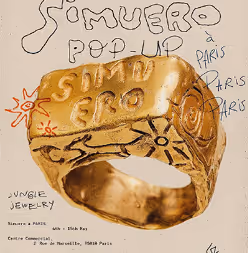 SIMUERO
POP-UP
à
PARIS
PARIS
PARIS
SIMU
ERO
JUNGLE
JEWELRY
Simuero à PARIS
Centre Commercial,
2 Rue de Marseille, 75010 Paris